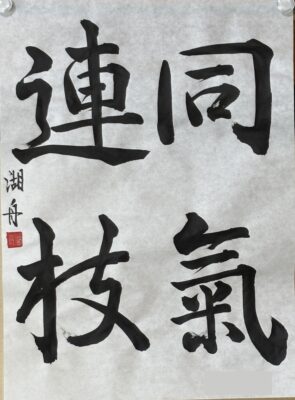 同氣
連枝
湖舟